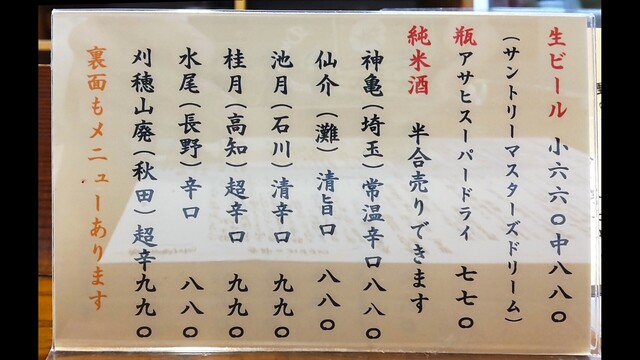 生ビール 小六六〇中八八〇
(サントリーマスターズドリーム)
瓶アサヒスーパードライ 七七〇
純米酒 半合売りできます
神亀(埼玉)常温辛口八八〇
仙介(灘)清旨口 八八〇
池月(石川)清辛口 九九〇
桂月(高知)超辛口 九九〇
水尾(長野)辛口 八八〇
刈穂山廃(秋田)超辛九九〇
裏面もメニューあります